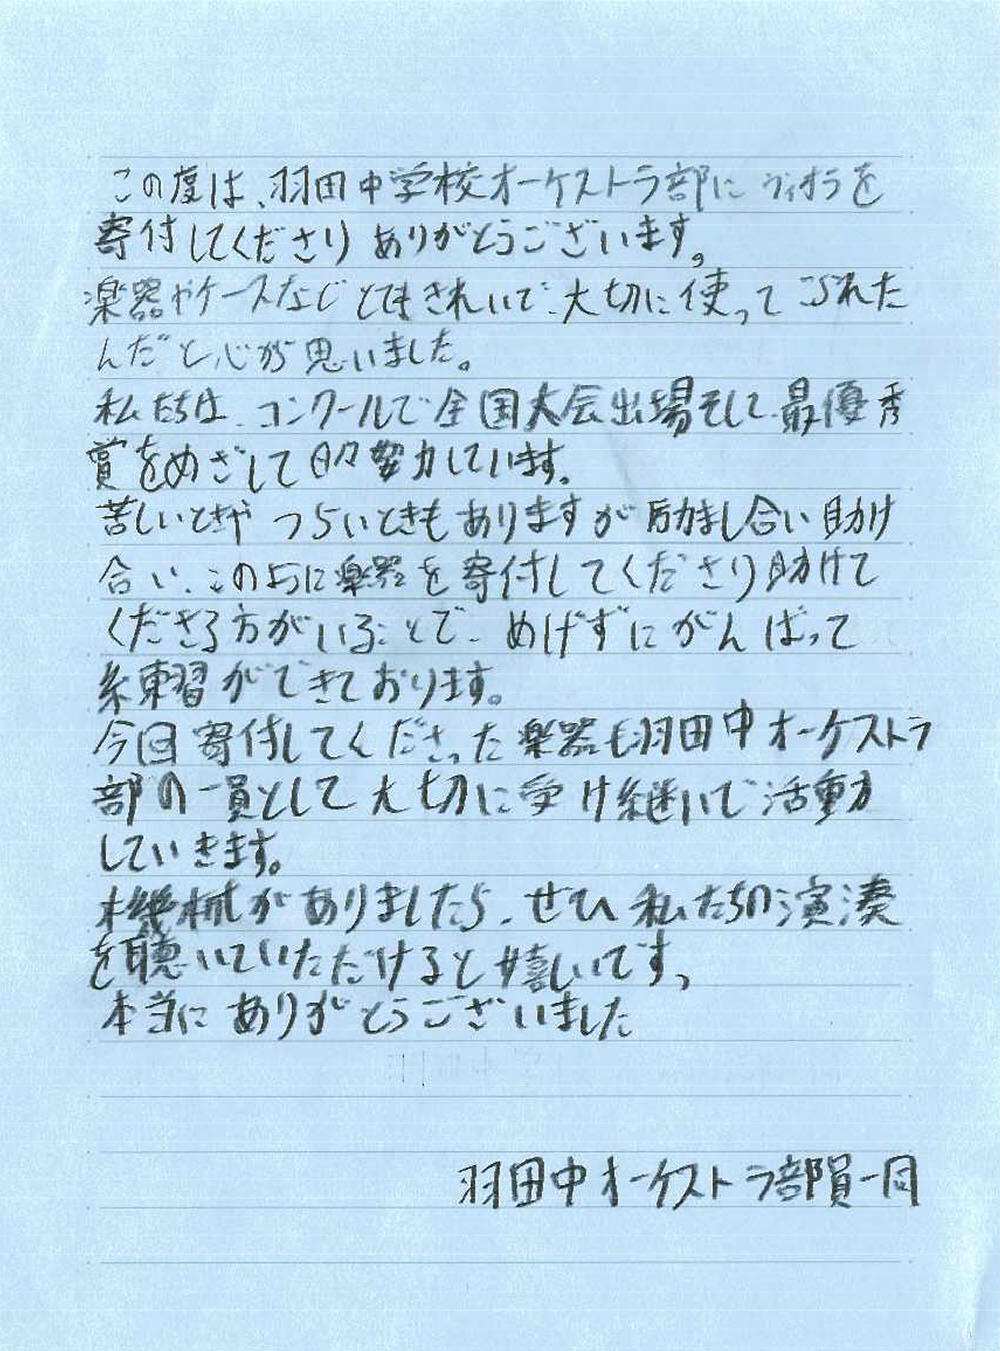 この度は、羽田中学校オーケストラ部にヴィオラを
寄付してくださりありがとうございます。
楽器やケースなどとてもきれいで、大切に使ってこられた
んだと心が思いました。
私たちは、コンクールで全国大会出場そして、最優秀
賞をめざして日々努力しています。
苦しいときやつらいときもありますが励まし合い助け
合い、このように楽器を寄付してくださり助けて
くださる方がいることで、めげずにがんばって
練習ができております。
今回寄付してくださった楽器も羽田中オーケストラ
部の一員として大切に受け継いで活動
していきます。
機械がありましたら、ぜひ私たちの演湊
を聴いていただけると嬉しいです。
本当にありがとうございました
羽田中オーケストラ部員一同